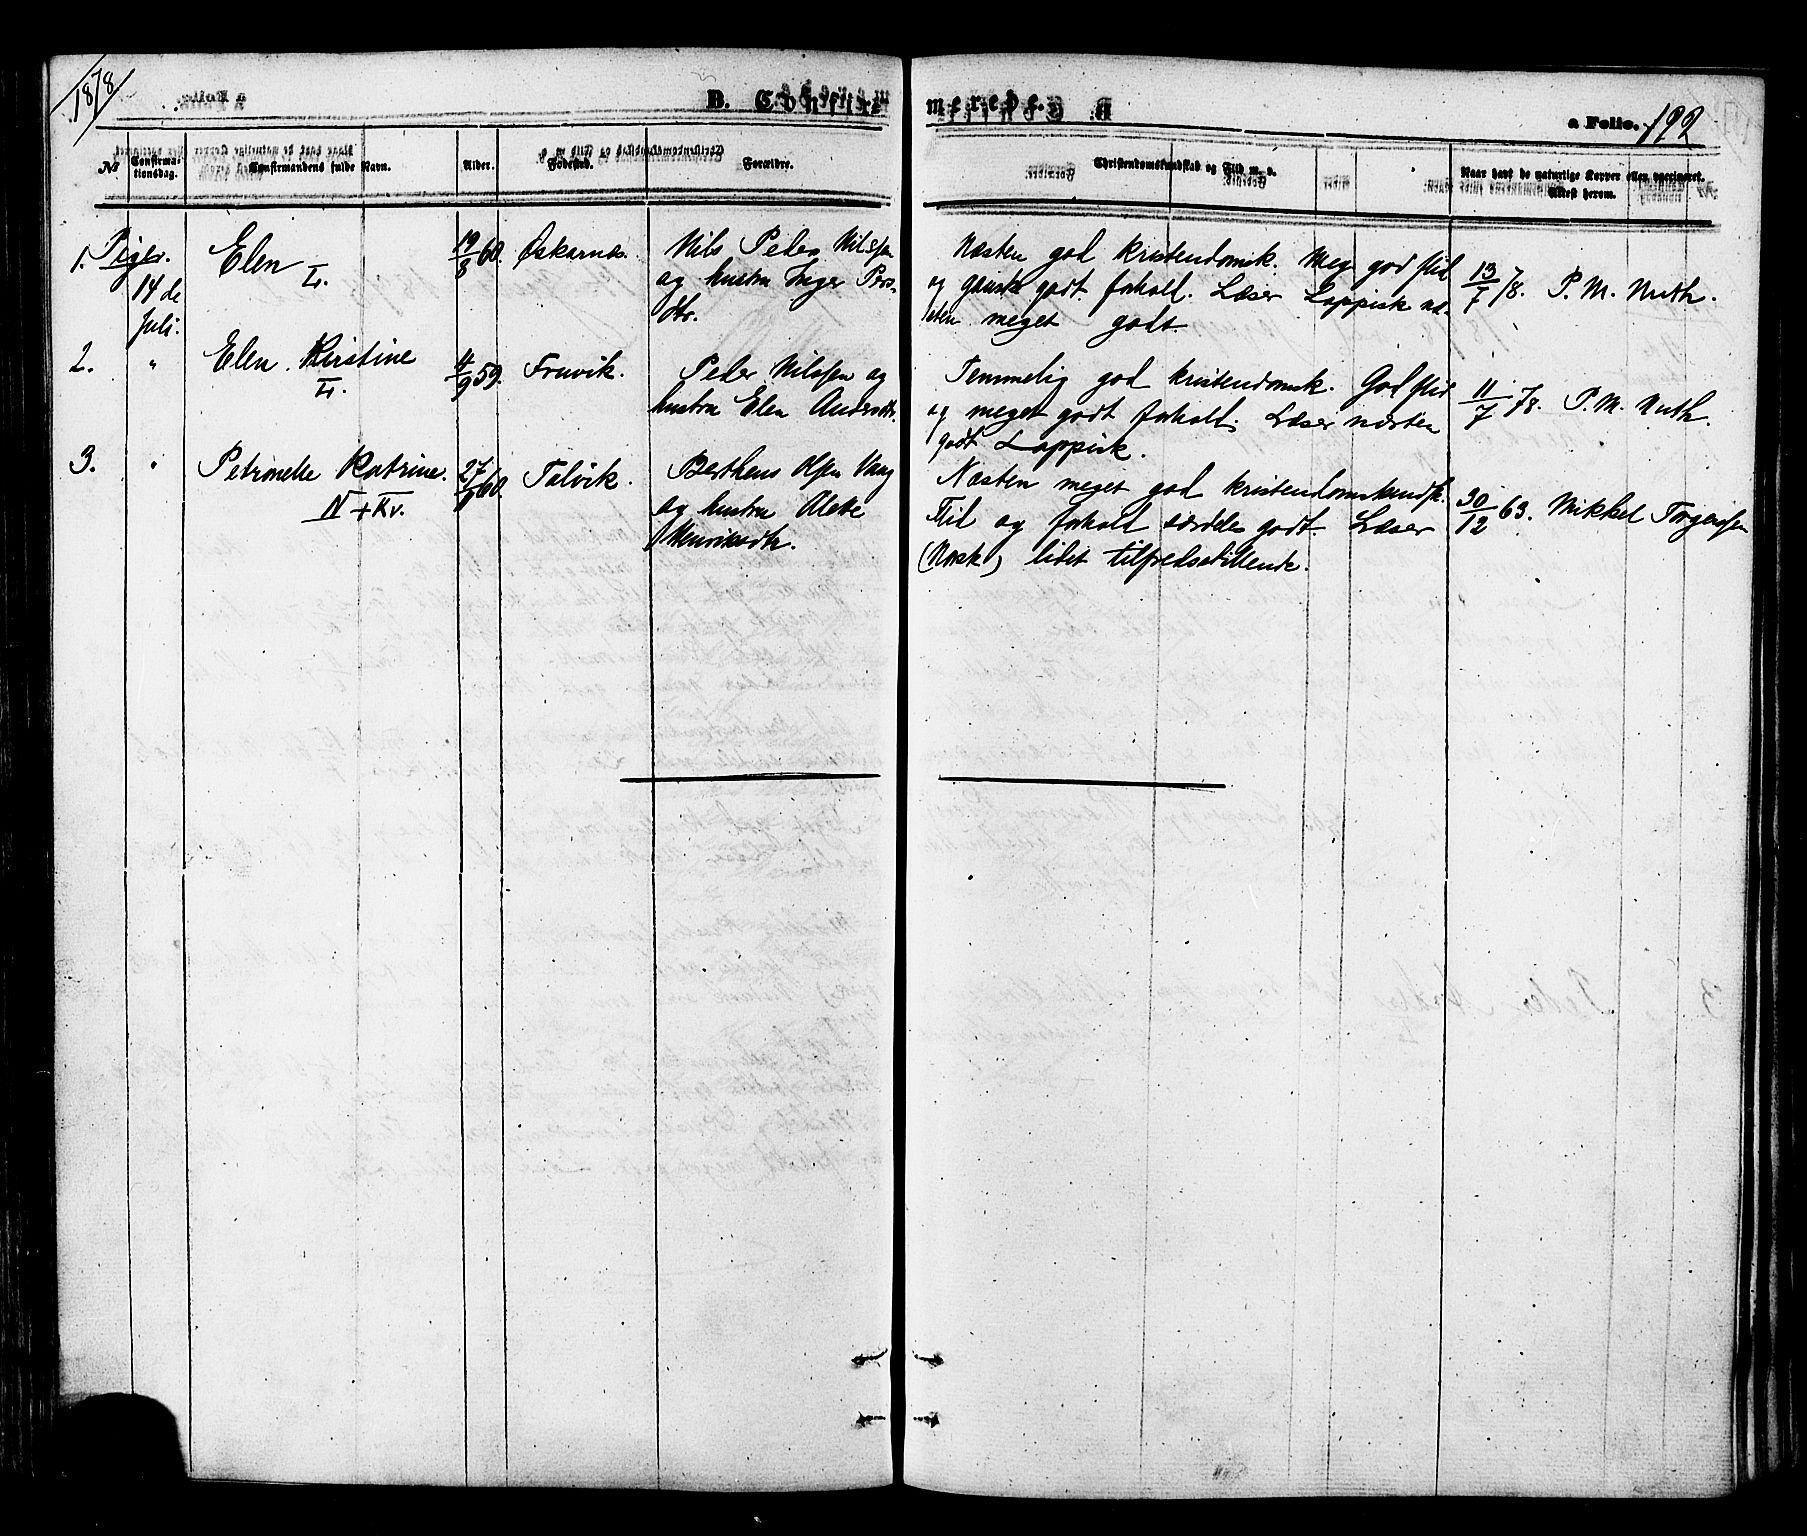 1878
B. Confirmerede.
a Folio. 192
№
Confirma-
tionsdag.
Confirmandens fulde Navn.
Alder.
Fødested.
Forældre.
Christendomskundskab og Flid m. v.
Naar havt de naturlige Kopper eller vaccineret.
Attest herom.
1. Piger. Elen 19/8 60. Oskarnæs. Nils Peder Nilssen Næsten god kristendomsk. Meg. god flid 13/7 78. P. M. Muth.
14 de L. og hustru Inger Pers- og ganske godt forhold. Læser Lappisk næ-
Juli. dtr. sten meget godt.
2. " Elen Kirstine 4/9 59. Fruvik. Peder Nilssen og Temmelig god kristendomsk. God flid 11/7 78. P. M. Muth.
L. hustru Elen Andersdtr. og meget godt forhold. Læser næsten
godt Lappisk.
3. " Petronelle Katrine. 27/9 60. Talvik. Berthens Olsen Vang Næsten meget god kristendomskundsk. 30/12 63. Mikkel Torgersen
N + Kv. og hustru Alette Flid og forhold særdeles godt. Læser
Henriksdtr. (Norsk) lidet tilfredsstillende.